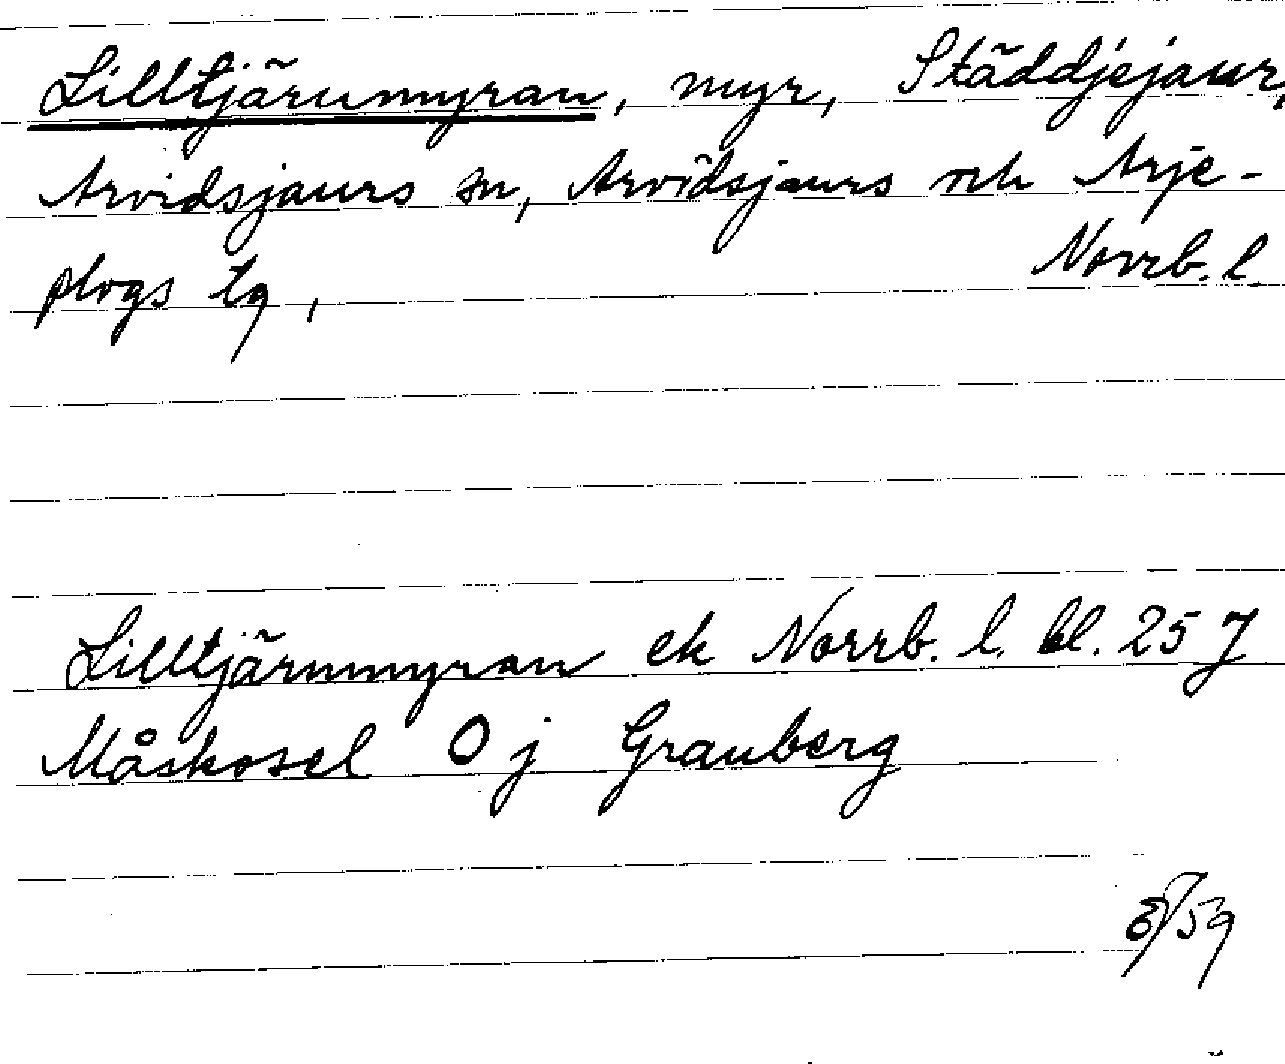 Lilltjärnmyran, myr, Ståddjejaur,
Arvidsjaurs sn, Arvidsjaurs och Arje-
plogs tg, Norrb. l.
Lilltjärnmyran ek Norrb. l. bl. 25 J
Måskosel O j Granberg